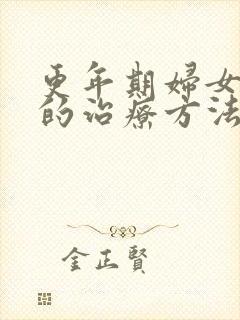 更年期婦女
的治療方法
金正賢